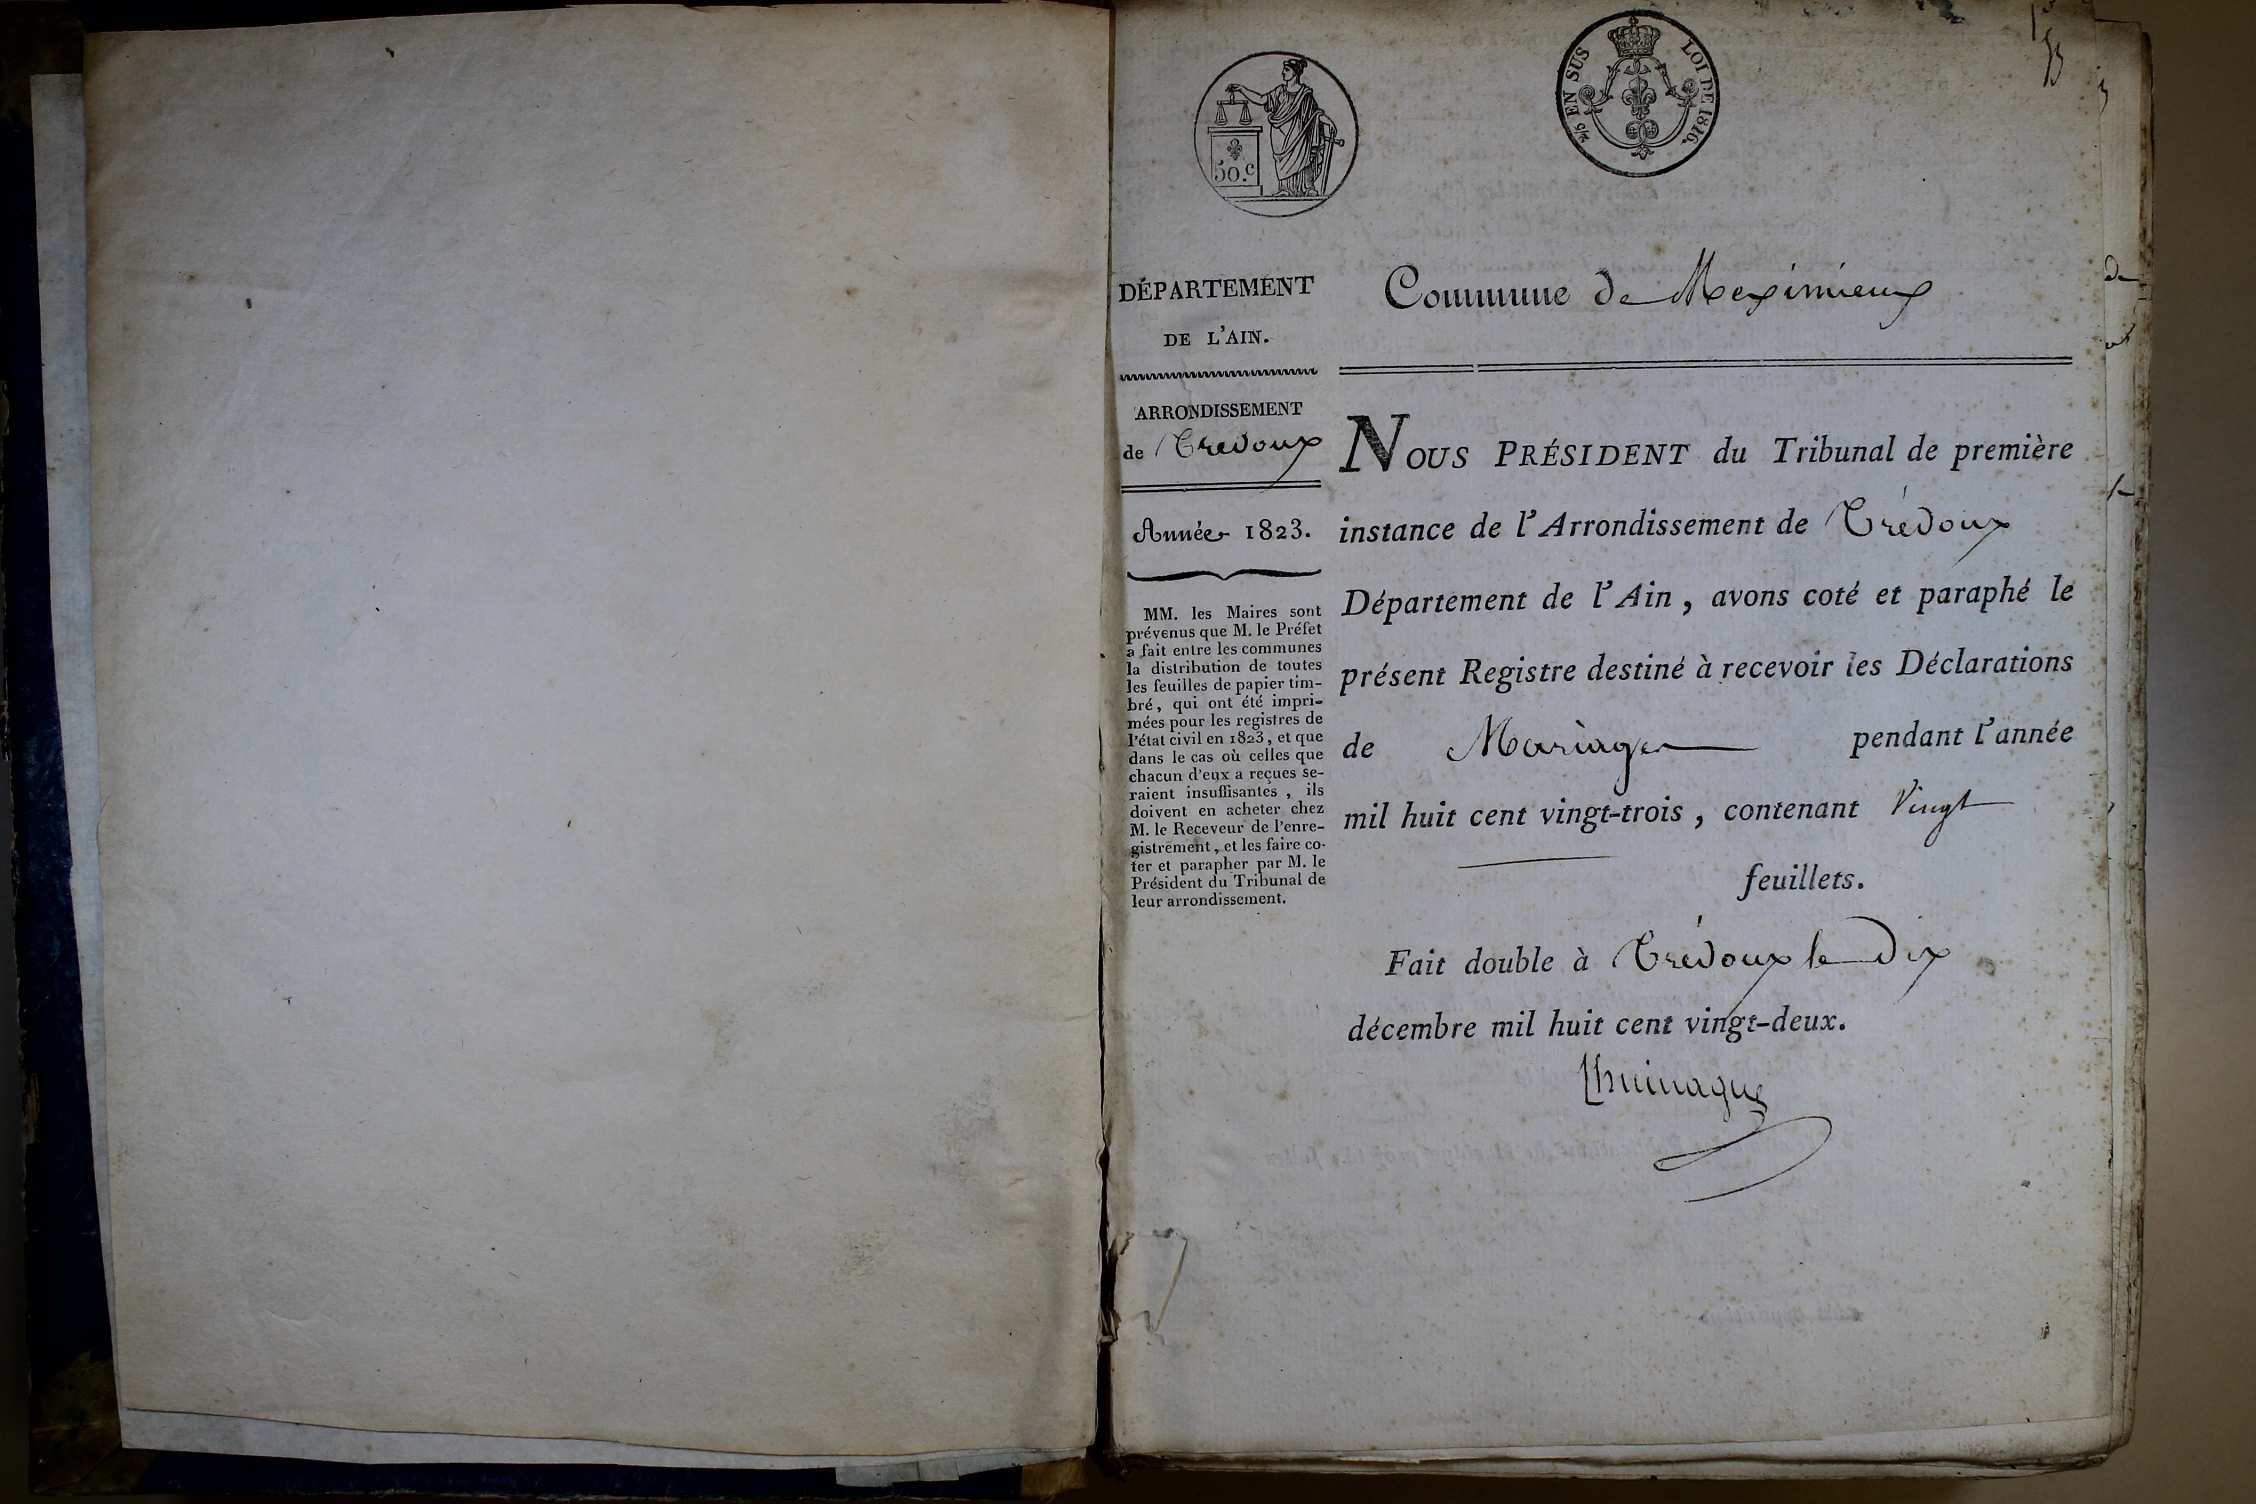 50.c
2/5 EN SUS LOI DE 1816.
DÉPARTEMENT
DE L'AIN.
ARRONDISSEMENT
de Trévoux
Année 1823.
MM. les Maires sont
prévenus que M. le Préfet
a fait entre les communes
la distribution de toutes
les feuilles de papier tim-
bré, qui ont été impri-
mées pour les registres de
l'état civil en 1823, et que
dans le cas où celles que
chacun d'eux a reçues se-
raient insuffisantes, ils
doivent en acheter chez
M. le Receveur de l'enre-
gistrement, et les faire co-
ter et parapher par M. le
Président du Tribunal de
leur arrondissement.
Commune de Meximieux
NOUS PRÉSIDENT du Tribunal de première
instance de l'Arrondissement de Trévoux
Département de l'Ain, avons coté et paraphé le
présent Registre destiné à recevoir les Déclarations
de Mariages pendant l'année
mil huit cent vingt-trois, contenant Vingt
feuillets.
Fait double à Trévoux le Dix
décembre mil huit cent vingt-deux.